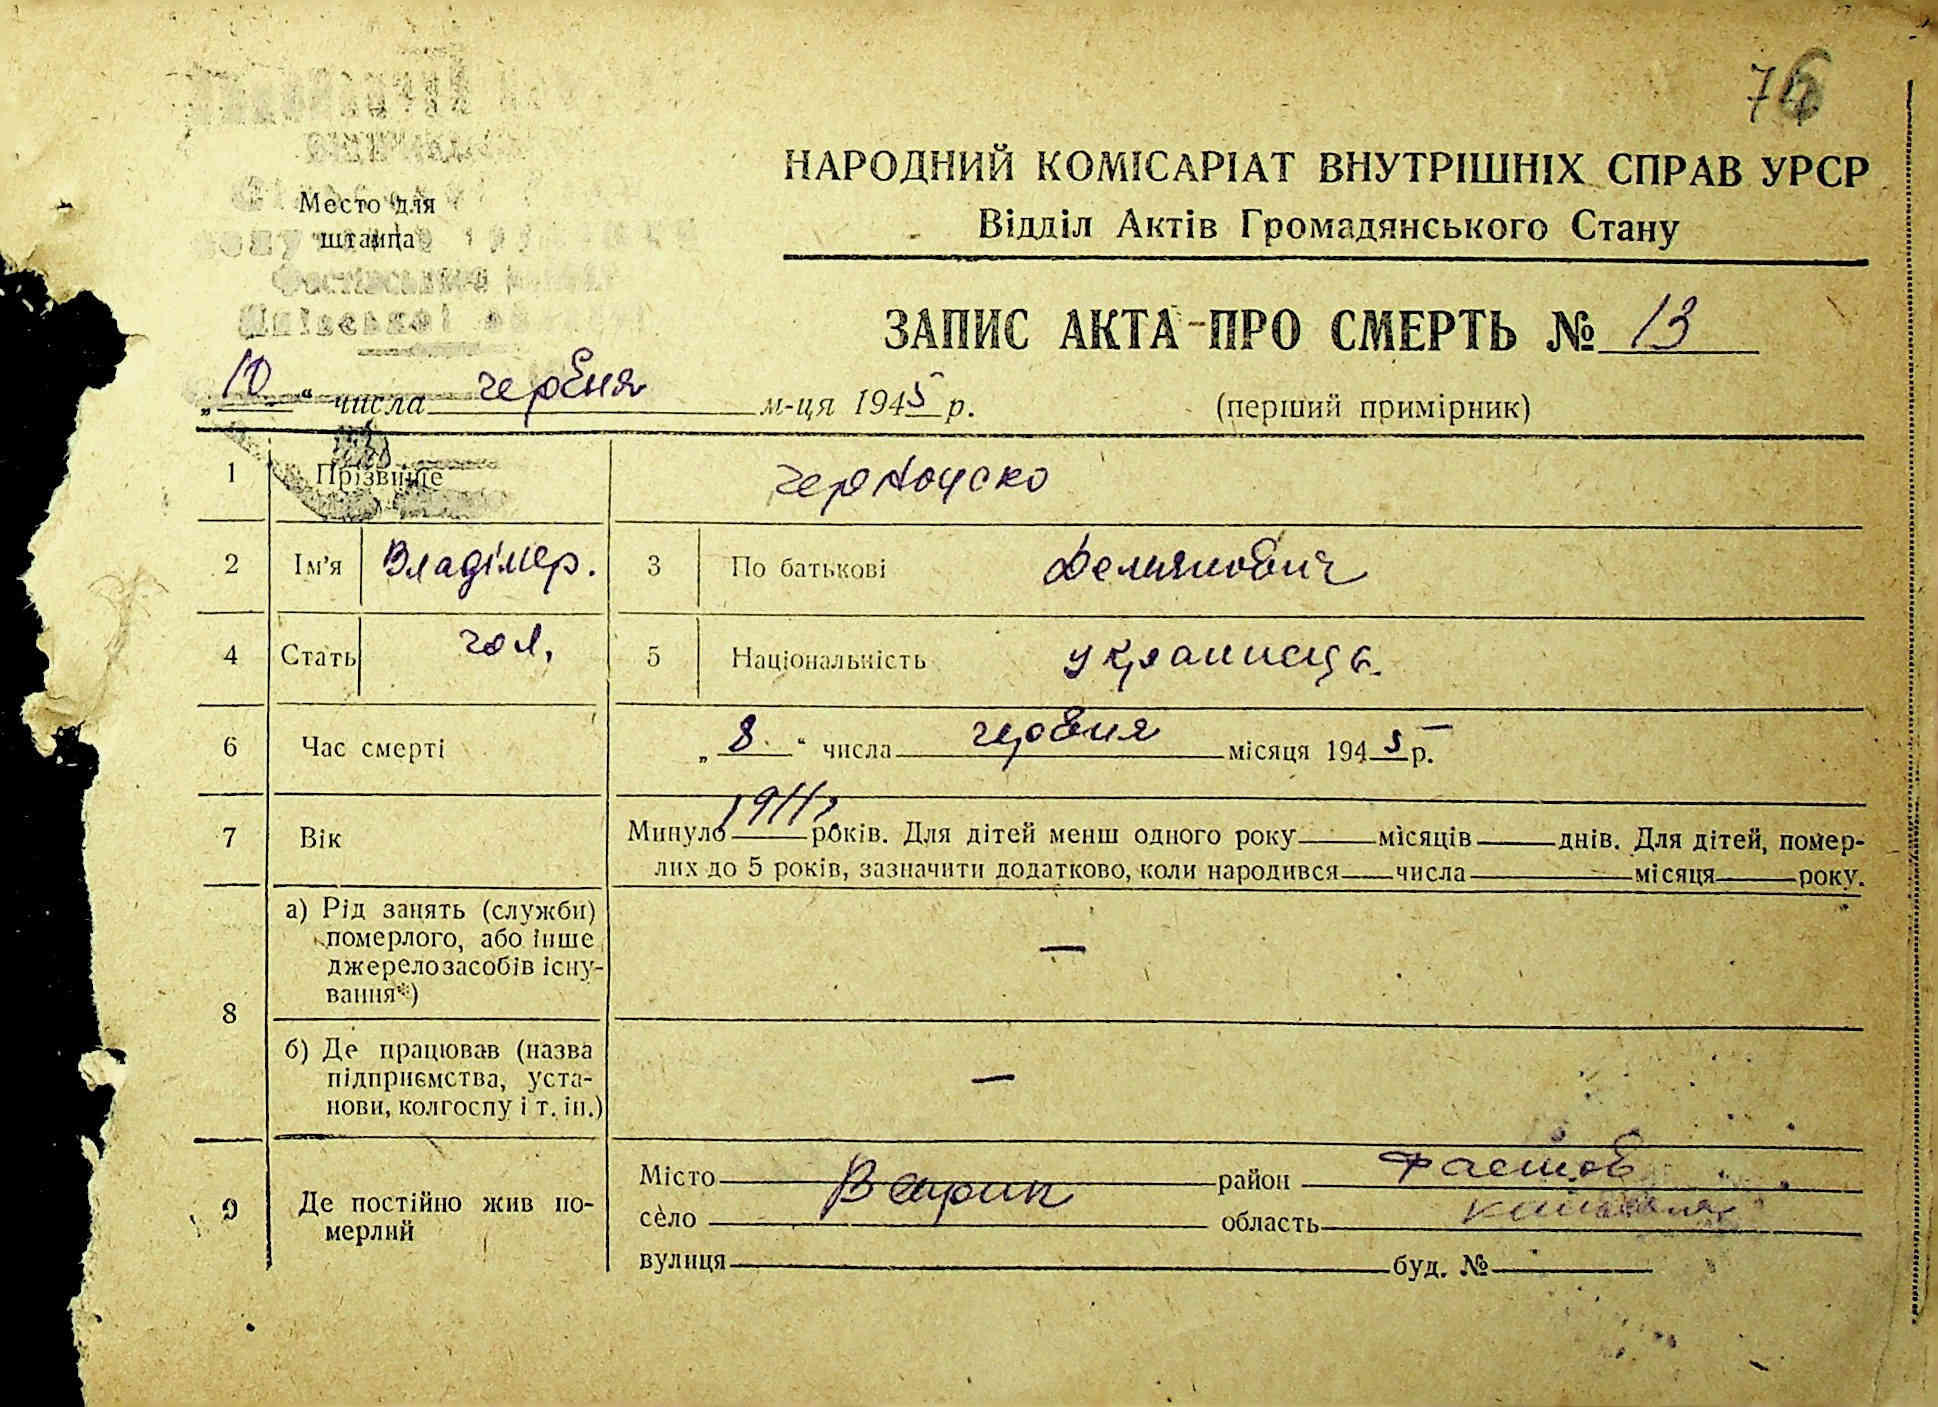 76
НАРОДНИЙ КОМІСАРІАТ ВНУТРІШНІХ СПРАВ УРСР
Відділ Актів Громадянського Стану
Место для
штампа
ЗАПИС АКТА ПРО СМЕРТЬ № 13
„10“ числа червня м-ця 1945 р.
(перший примірник)
1 Прізвище
2 Ім'я Владімер. 3 По батькові Демянович
4 Стать чол, 5 Національність украинець.
6 Час смерті „8“ числа червня місяця 1945 р.
7 Вік Минуло 1911 р. років. Для дітей менш одного року місяців днів. Для дітей, помер-
лих до 5 років, зазначити додатково, коли народився числа місяця року.
8 а) Рід занять (служби) —
померлого, або інше
джерело засобів існу-
вання*)
б) Де працював (назва —
підприємства, уста-
нови, колгоспу і т. ін.)
9 Де постійно жив по-
мерлий
Місто район Фастов
село область
вулиця буд. №